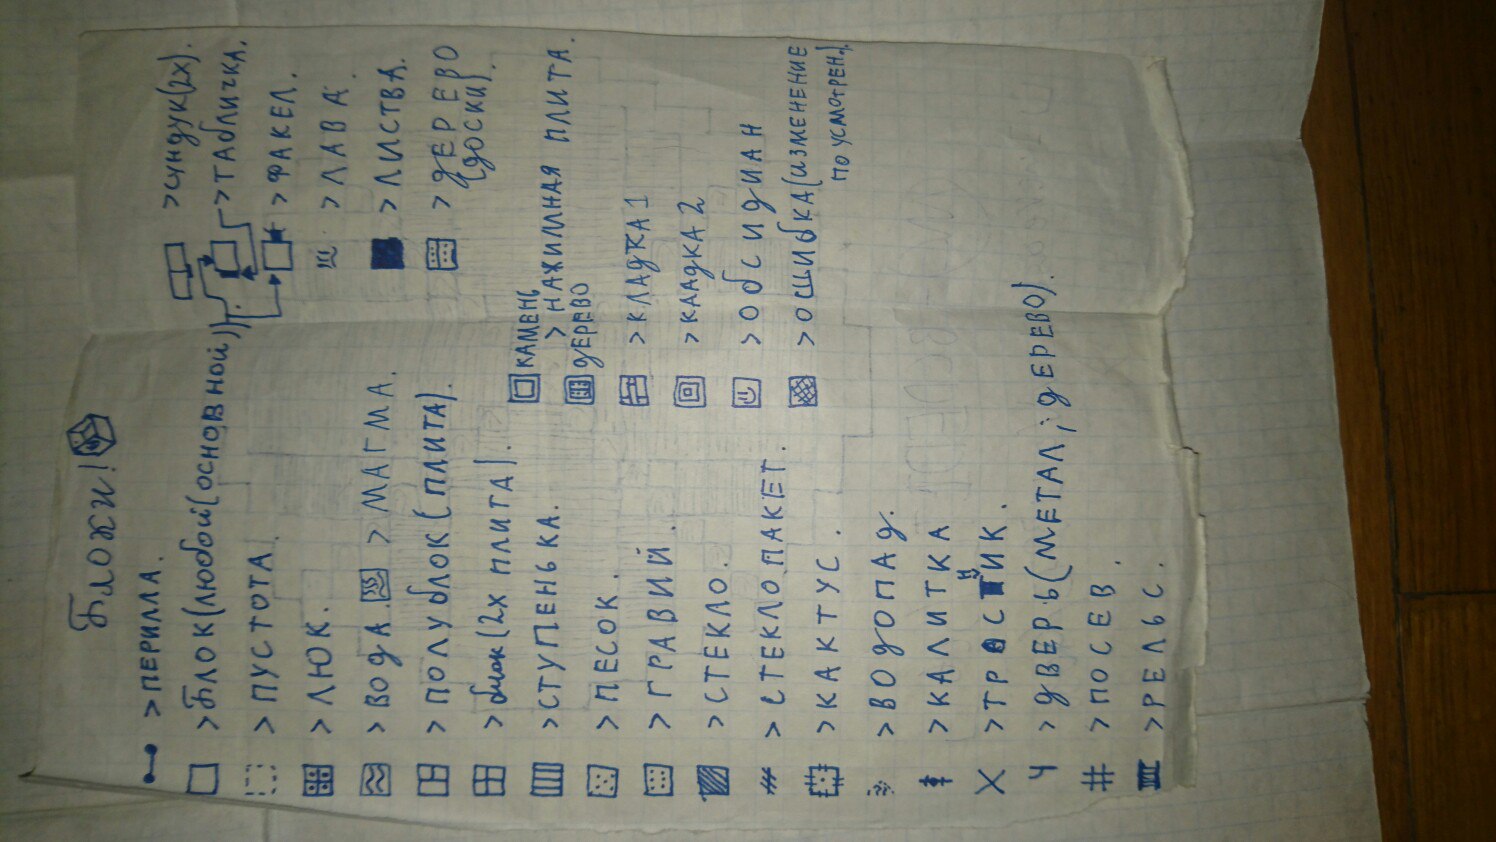 Блоки!
>ПЕРИЛЛА.
>БЛОК(любой(основной)).
>ПУСТОТА.
>ЛЮК.
>ВОДА. >МАГМА.
>ПОЛУблОК(ПЛИТА).
>блок(2х ПЛИТА).
>СТУПЕНЬКА.
>ПЕСОК.
>ГРАВИЙ.
>СТЕКЛО.
>СТЕКЛОПАКЕТ.
>КАКТУС.
>ВОДОПАД.
>КАЛИТКА
>ТРОСТНИК.
>ДВЕРЬ(МЕТАЛ; ДЕРЕВО).
>ПОСЕВ.
>РЕЛЬС.
>СУНДУК(2х).
>ТАБЛИЧКА.
>ФАКЕЛ.
>ЛАВА.
>ЛИСТВА.
>ДЕРЕВО
(ДОСКИ).
КАМЕНЬ
>НАЖИМНАЯ ПЛИТА.
ДЕРЕВО
>КЛАДКА1
>КЛАДКА2
>ОБСИДИАН
>ОШИБКА(ИЗМЕНЕНИЕ
ПО УСМОТРЕН.).